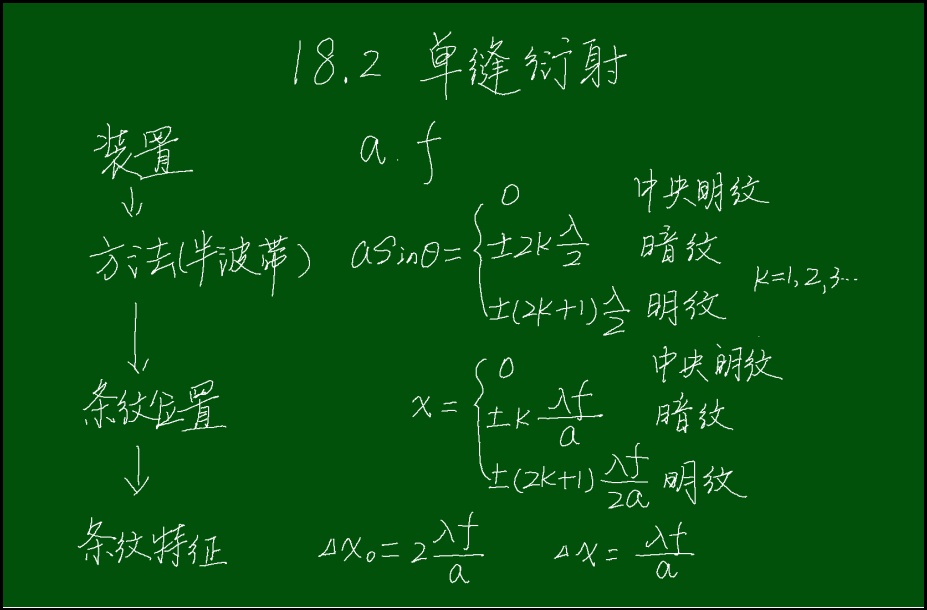 18.2 单缝衍射
装置 a.f
方法(半波带) asinθ= { 0 中央明纹
±2k λ/2 暗纹
±(2k+1) λ/2 明纹 k=1,2,3…
条纹位置 x= { 0 中央明纹
±k λf/a 暗纹
±(2k+1) λf/2a 明纹
条纹特征 Δx₀=2 λf/a Δx= λf/a